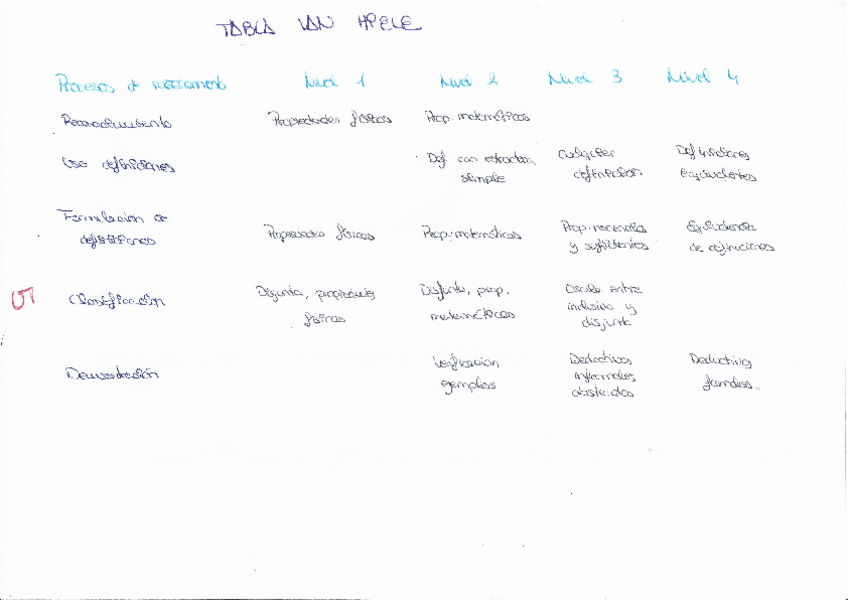 TABLA VAN HIELE
Procesos de razonamiento Nivel 1 Nivel 2 Nivel 3 Nivel 4
Reconocimiento Propiedades físicas Prop. matemáticas
Uso definiciones Def. con estructura simple Cualquier definición Definiciones equivalentes
Formulación de definiciones Propiedades físicas Prop. matemáticas Prop. necesarias y suficientes Equivalencia de definiciones
Clasificación Disjunta, propiedades físicas Disjunta, prop. matemáticas entre inclusiva y disjunta
Demostración Verificación ejemplos Deductivas informales abstractas Deductivas formales.